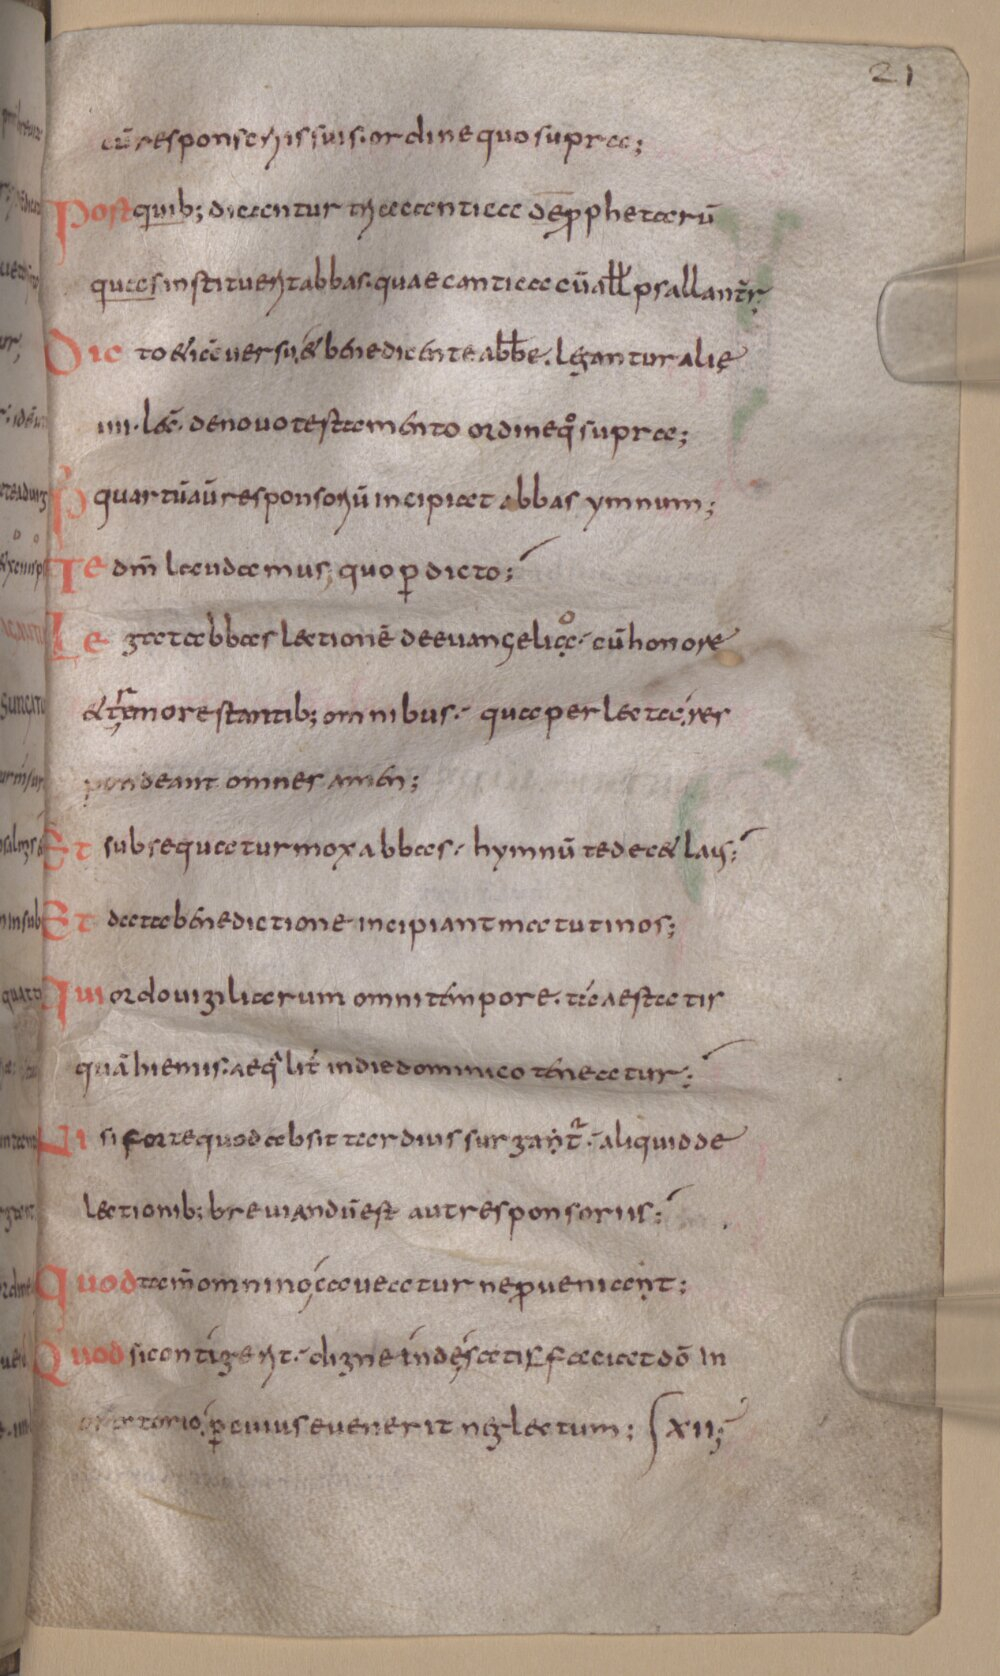 21
cū responsoriis suis. ordine quo supra;
Post quib; dicantur tria cantica de pphetarū
quas instituerit abbas. quae cantica cū all psallant̄r.
Dic to & iā uersu, & benedicente abbe. legantur alię
IIII. lec̄. de nouo testamento ordine qo supra;
P' quartū aū responsoriū incipiat abbas ymnum;
Te dm̄ laudamus, quo p dicto;
Le gat abbas lectionē de euangelio. cū honore
& tremore stantib; omnibus. qua perlecta, res
pondeant omnes amen;
Et subsequatur mox abbas. hymnū te dec& laus;
Et data benedictione incipiant matutinos;
Qui ordo uigiliarum omni tempore. tā aestatis
quā hiemis. aeqlit̄ in die dominico teneatur;
Ni si forte quod absit tardius surgant̄. aliquid de
lectionib; breuiandū est aut responsoriis;
Quod tam̄ omnino caueatur ne proueniat;
Quod si contigerit. digne inde satisfaciat dō in
oratorio, p cuius euenerit neglectum; XII;